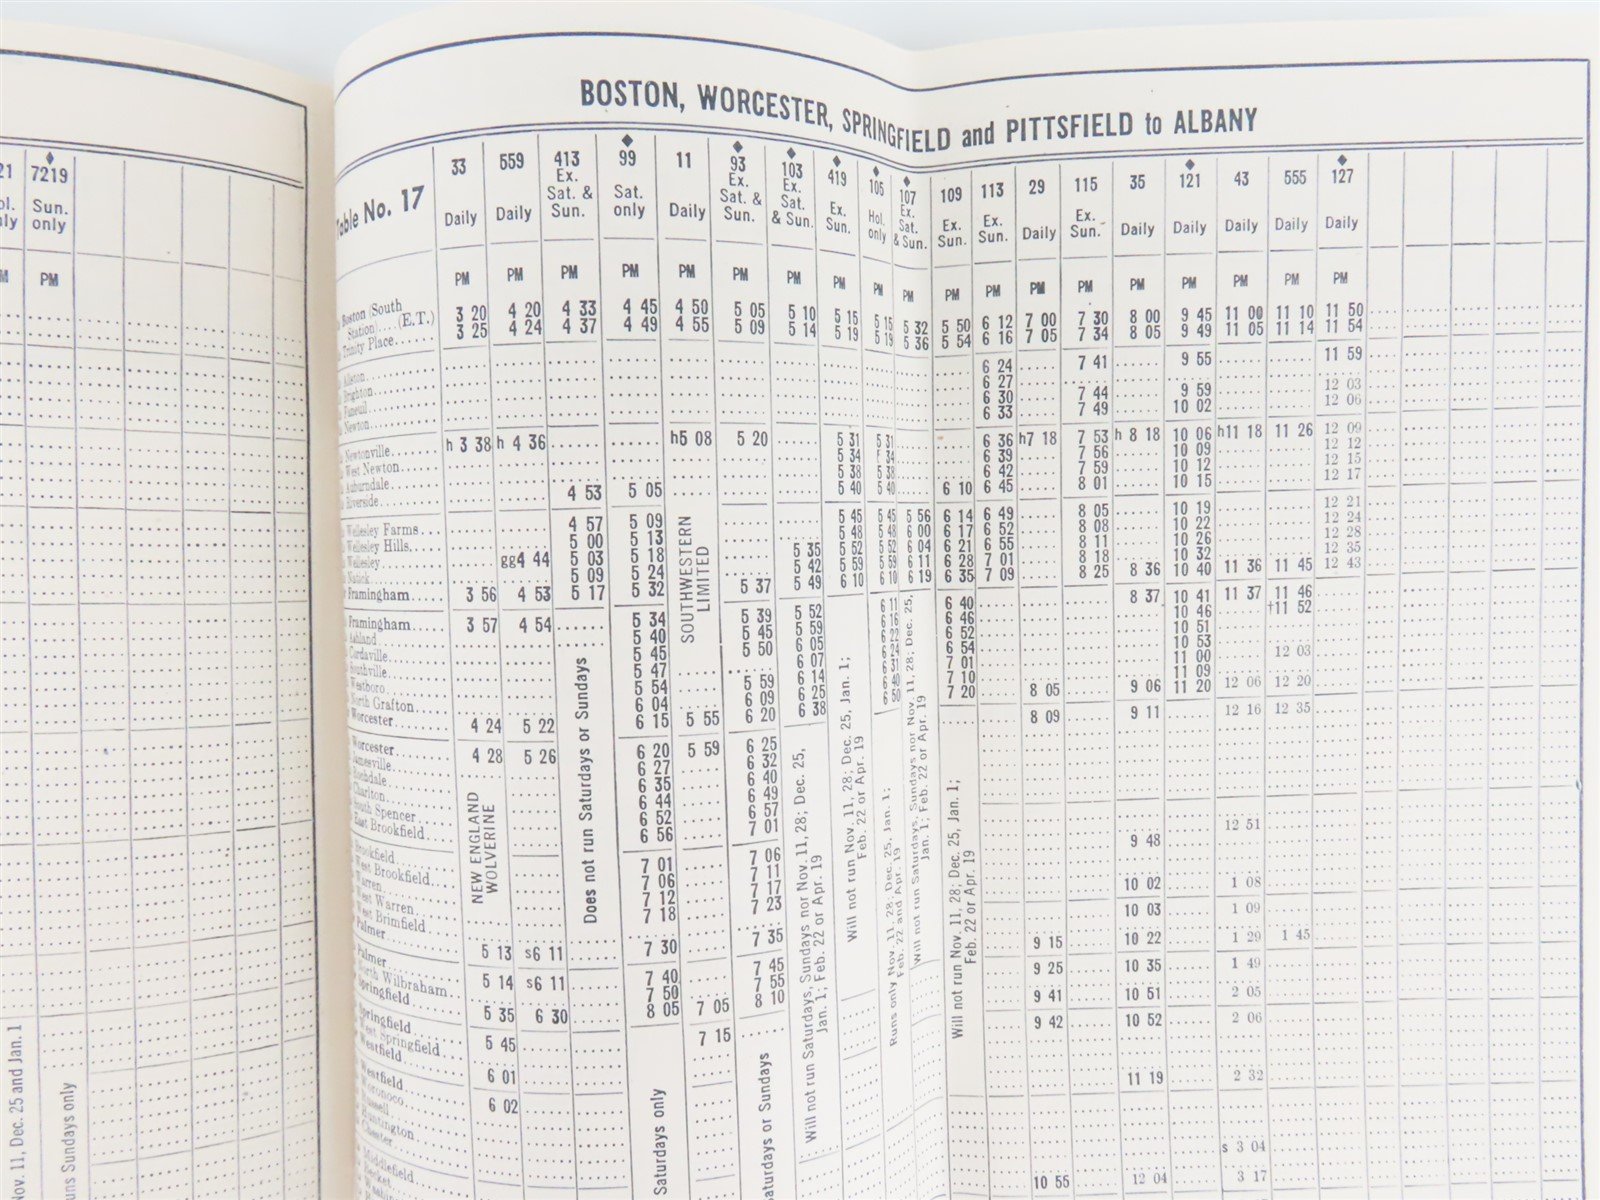 BOSTON, WORCESTER, SPRINGFIELD and PITTSFIELD to ALBANY
21 7219
Sun. only
PM
Nov. 11, Dec. 25 and Jan. 1
Sundays only
Table No. 17
33 559 413 99 11 93 103 419 105 107 109 113 29 115 35 121 43 555 127
Daily Daily Ex. Sat. & Sun. Sat. only Daily Ex. Sat. & Sun. Ex. Sat. & Sun. Ex. Sun. Hol. only Ex. Sat. & Sun. Ex. Sun. Ex. Sun. Daily Ex. Sun. Daily Daily Daily Daily Daily
PM PM PM PM PM PM PM PM PM PM PM PM PM PM PM PM PM PM PM
Boston (South Station) (E.T.) 3 20 4 20 4 33 4 45 4 50 5 05 5 10 5 15 5 15 5 32 5 50 6 12 7 00 7 30 8 00 9 45 11 00 11 10 11 50
Trinity Place 3 25 4 24 4 37 4 49 4 55 5 09 5 14 5 19 5 19 5 36 5 54 6 16 7 05 7 34 8 05 9 49 11 05 11 14 11 54
Allston 6 24 7 41 9 55 11 59
Brighton 6 27
Faneuil 6 30 7 44 9 59 12 03
Newton 6 33 7 49 10 02 12 06
Newtonville h 3 38 h 4 36 h5 08 5 20 5 31 5 31 6 36 h7 18 7 53 h 8 18 10 06 h11 18 11 26 12 09
West Newton 5 34 34 6 39 7 56 10 09 12 12
Auburndale 5 38 5 38 6 42 7 59 10 12 12 15
Riverside 4 53 5 05 5 40 5 40 6 10 6 45 8 01 10 15 12 17
Wellesley Farms 4 57 5 09 5 45 5 45 5 56 6 14 6 49 8 05 10 19 12 21
Wellesley Hills 5 00 5 13 5 48 5 48 6 00 6 17 6 52 8 08 10 22 12 24
Wellesley gg4 44 5 03 5 18 5 35 5 52 5 52 6 04 6 21 6 55 8 11 10 26 12 28
Natick 5 09 5 24 5 42 5 59 5 59 6 11 6 28 7 01 8 18 10 32 12 35
Framingham 3 56 4 53 5 17 5 32 5 37 5 49 6 10 6 10 6 19 6 35 7 09 8 25 8 36 10 40 11 36 11 45 12 43
Framingham 3 57 4 54 5 34 5 39 5 52 6 11 6 40 8 37 10 41 11 37 11 46
Ashland 5 40 5 45 5 59 6 16 6 46 10 46 †11 52
Cordaville 5 45 5 50 6 05 6 22 6 52 10 51
Southville 5 47 6 07 6 54 10 53
Westboro 5 54 5 59 6 14 7 01 11 00 12 03
North Grafton 6 04 6 09 6 25 6 40 7 10 11 09
Worcester 4 24 5 22 6 15 5 55 6 20 6 38 6 50 7 20 8 05 9 06 11 20 12 06 12 20
Worcester 4 28 5 26 6 20 5 59 6 25 8 09 9 11 12 16 12 35
Jamesville 6 27 6 32
Rochdale 6 35 6 40
Charlton 6 44 6 49
South Spencer 6 52 6 57
East Brookfield 6 56 7 01
12 51
Brookfield 7 01 7 06 9 48
West Brookfield 7 06 7 11
Warren 7 12 7 17 10 02 1 08
West Warren 7 18 7 23
West Brimfield 10 03 1 09
Palmer 5 13 s6 11 7 30 7 35 9 15 10 22 1 29 1 45
Palmer 5 14 s6 11 7 40 7 45 9 25 10 35 1 49
North Wilbraham 7 50 7 55
Springfield 5 35 6 30 8 05 7 05 8 10 9 41 10 51 2 05
Springfield 5 45 7 15 9 42 10 52 2 06
West Springfield
Westfield 6 01 11 19 2 32
Westfield 6 02
Woronoco
Russell
Huntington
Chester s 3 04
Middlefield
Becket 10 55 12 04 3 17
NEW ENGLAND WOLVERINE
Does not run Saturdays or Sundays
Saturdays only
SOUTHWESTERN LIMITED
Saturdays or Sundays
Will not run Saturdays, Sundays nor Nov. 11, 28; Dec. 25, Jan. 1; Feb. 22 or Apr. 19
Will not run Nov. 11, 28; Dec. 25, Jan. 1; Feb. 22 or Apr. 19
Runs only Nov. 11, 28; Dec. 25, Jan. 1; Feb. 22 and Apr. 19
Will not run Saturdays, Sundays nor Nov. 11, 28; Dec. 25, Jan. 1; Feb. 22 or Apr. 19
Will not run Nov. 11, 28; Dec. 25, Jan. 1; Feb. 22 or Apr. 19